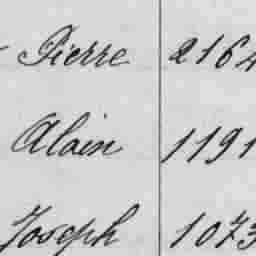 Pierre 2164
Alain 1191
Joseph 1073